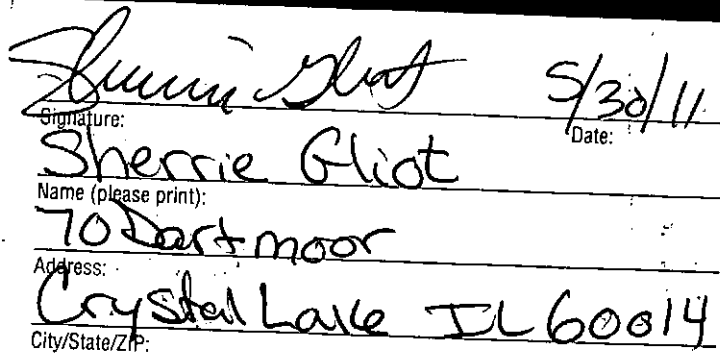 Sherrie Gliot 5/30/11
Signature: Date:
Sherrie Gliot
Name (please print):
70 Dartmoor
Address:
Crystal Lake IL 60014
City/State/ZIP: